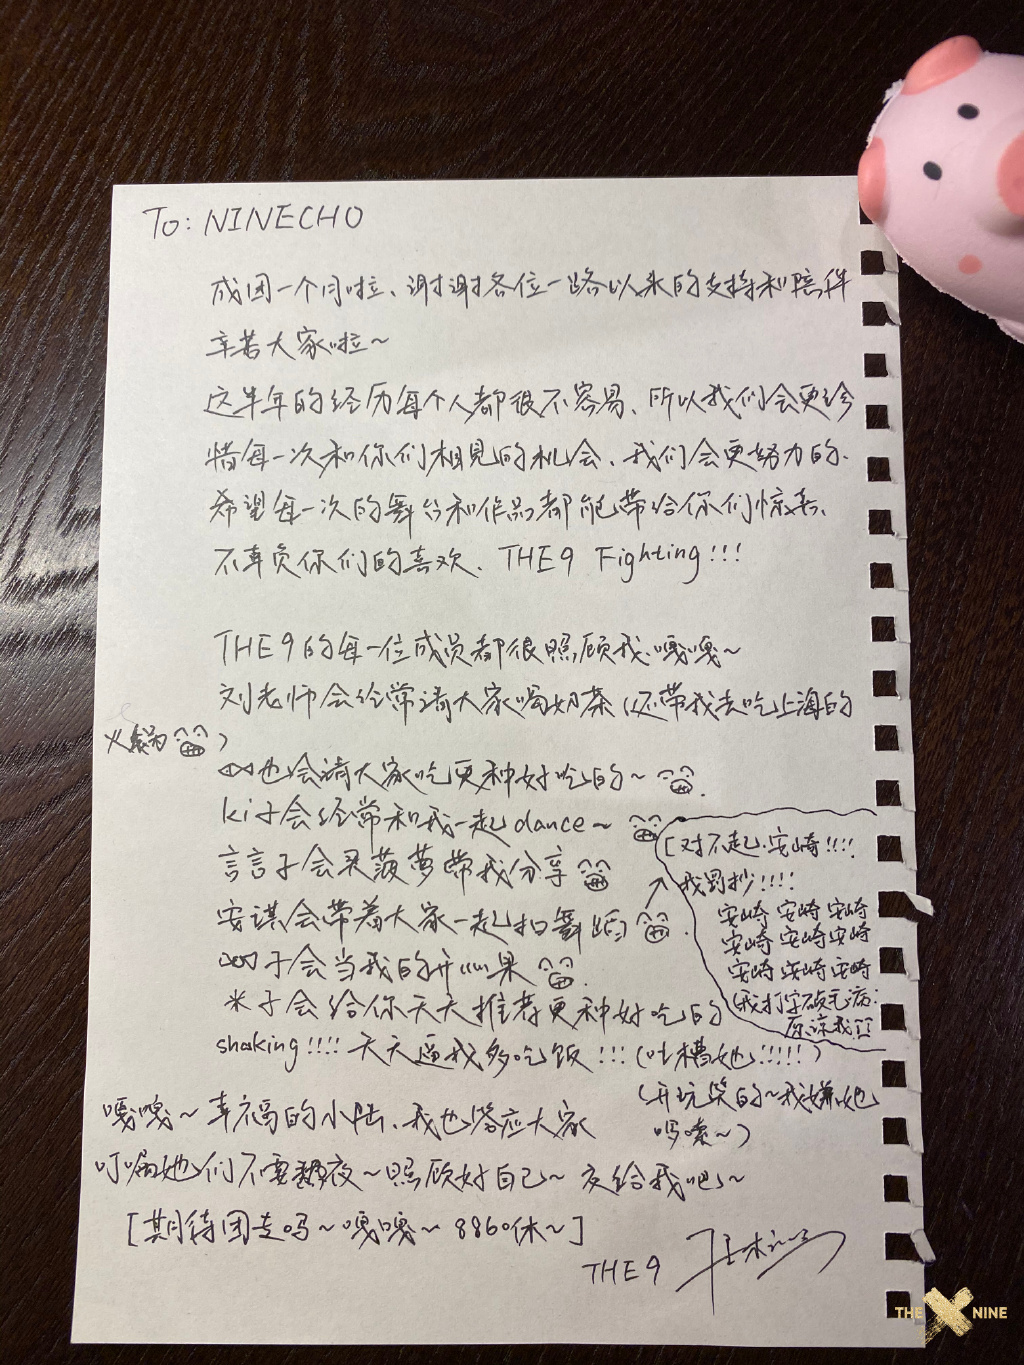 To: NINECHO
成团一个月啦、谢谢各位一路以来的支持和陪伴
辛苦大家啦~
这半年的经历每个人都很不容易、所以我们会更珍
惜每一次和你们相见的机会、我们会更努力的、
希望每一次的舞台和作品都能带给你们惊喜、
不辜负你们的喜欢、THE9 Fighting!!!
THE9的每一位成员都很照顾我、嘎嘎~
刘老师会经常请大家喝奶茶(还带我去吃上海的
火锅)
也会请大家吃更种好吃的~
ki子会经常和我一起dance~
言言子会买菠萝带我分享
安琪会带着大家一起扣舞蹈
子会当我的开心果
米子会给你天天推荐更种好吃的
shaking!!!! 天天逼我多吃饭!!!(吐槽她!!!!!)
(开玩笑的~我嫌她
啰嗦~)
[对不起、安崎!!!!
我罚抄!!!!
安崎 安崎 安崎
安崎 安崎 安崎
安崎 安崎 安崎
(我打字破毛病:
原谅我!!
嘎嘎~幸福的小陆、我也答应大家
叮嘱她们不要熬夜~照顾好自己~交给我吧~
[期待团走吗~嘎嘎~886休~]
THE9
THE X NINE